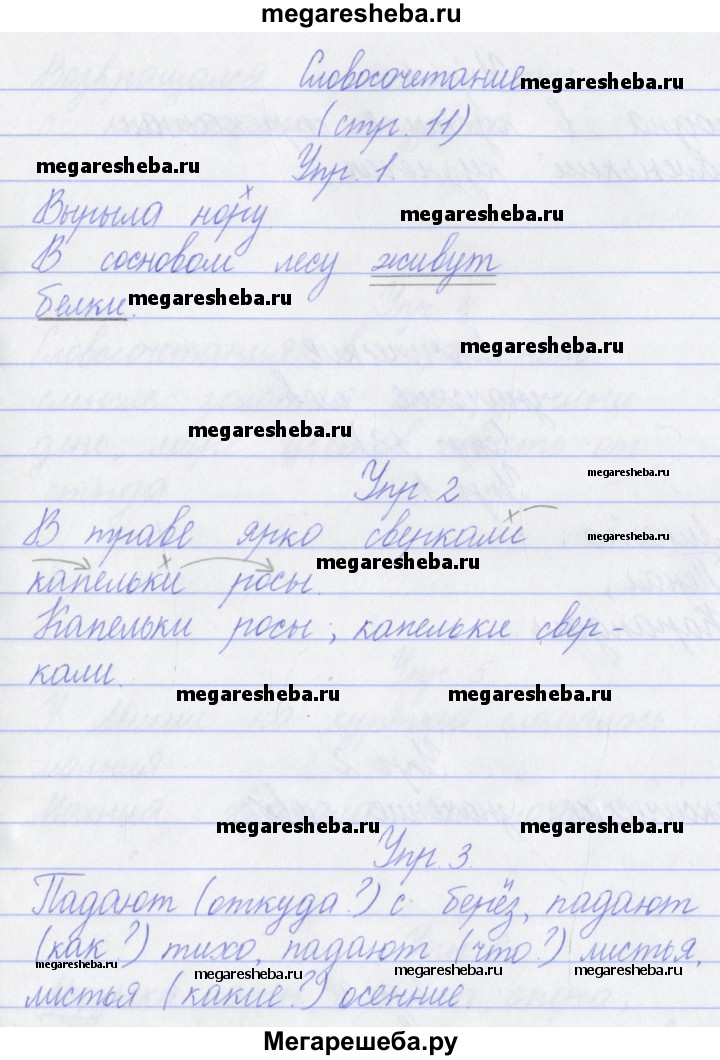 megaresheba.ru
Словосочетание megaresheba.ru
(стр. 11)
megaresheba.ru Упр. 1.
Вырыла нору. megaresheba.ru
В сосновом лесу живут
белки. megaresheba.ru
megaresheba.ru
megaresheba.ru
Упр. 2 megaresheba.ru
В траве ярко сверкали megaresheba.ru
капельки росы. megaresheba.ru
Капельки росы; капельки свер-
кали.
megaresheba.ru megaresheba.ru
megaresheba.ru megaresheba.ru
Упр. 3.
Падают (откуда?) с берёз, падают
(как?) тихо, падают (что?) листья,
megaresheba.ru megaresheba.ru megaresheba.ru megaresheba.ru
листья (какие?) осенние.
Мегарешеба.ру